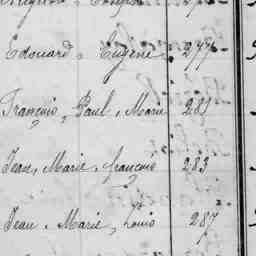 Edouard, Eugène 277
François, Paul, Marie 281
Jean, Marie, françois 283
Jean, Marie, Louis 287